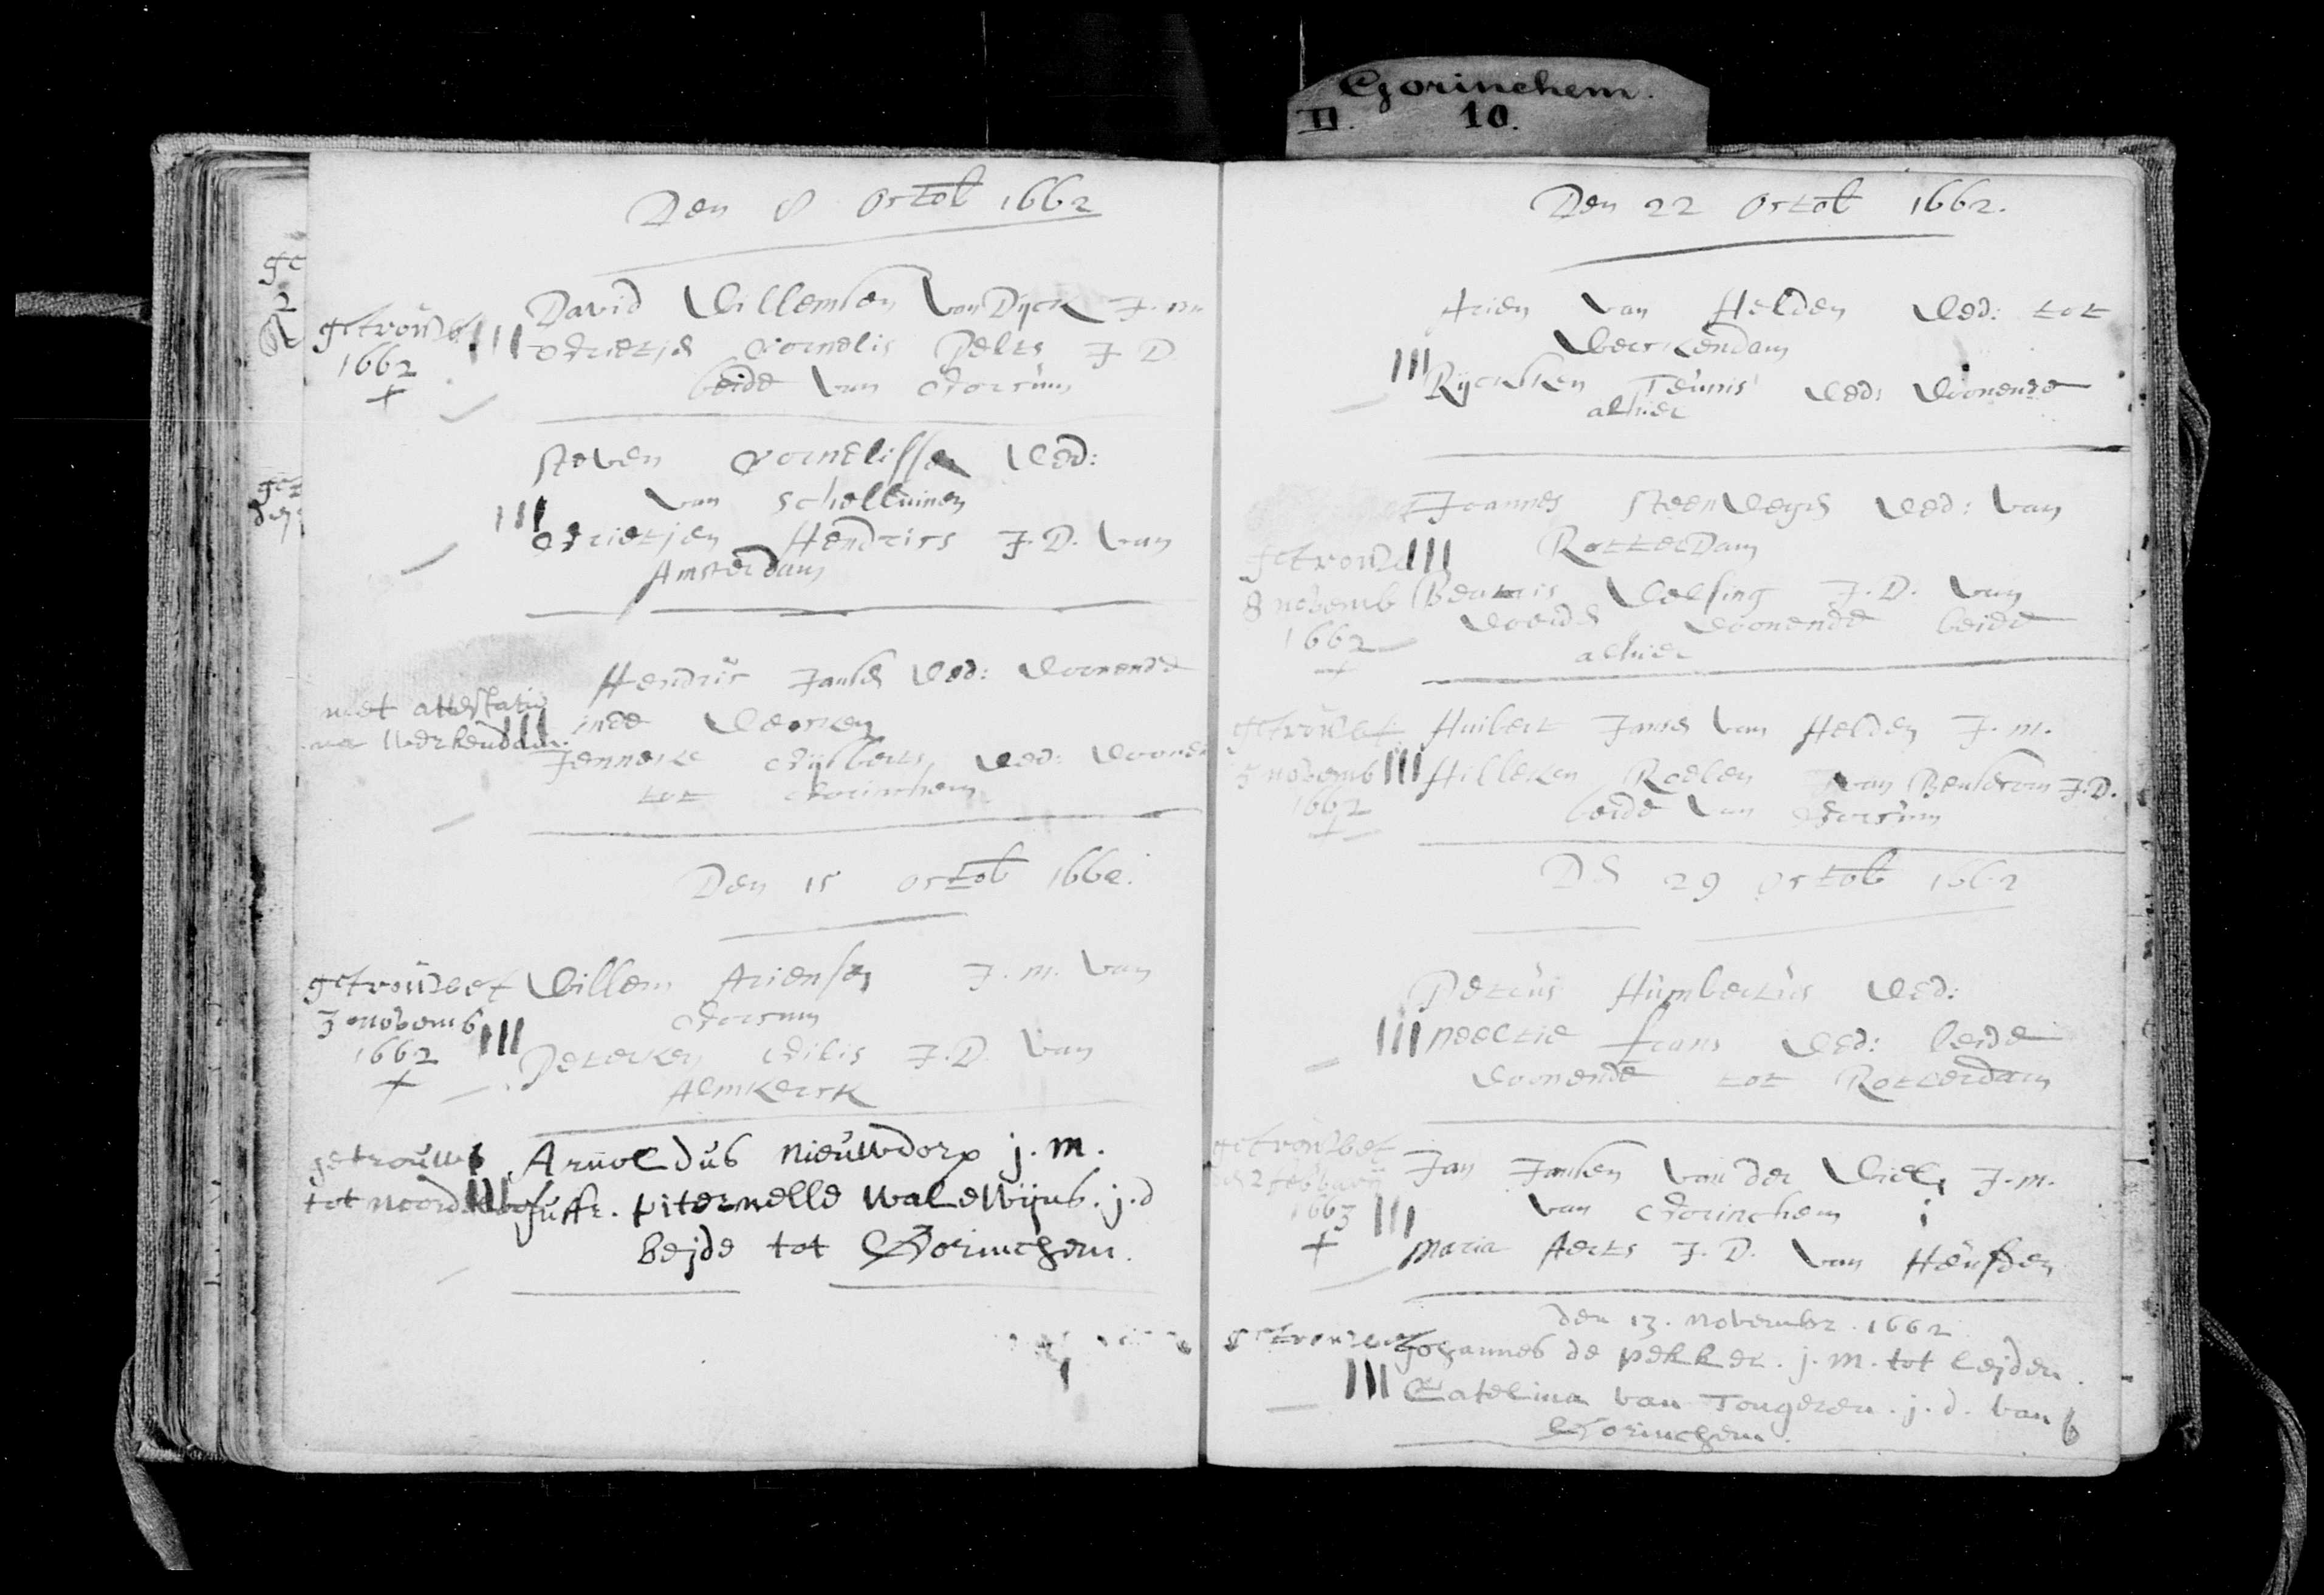 Gorinchem.
II. 10.
Den 8 octob 1662
getrouwet
1662
+
III
David Willemsen van Dyck J. m
Grietje Cornelis Pelts J D
beide van Gorcum
Steven Cornelisse Wed:
van Schelluinen
III
Grietjen Hendrics J. D. van
Amsterdam
met attestatie
na Werkendam.
III
Hendric Janse Wed: Woonende
inde Wercken
Jenneke Gijsberts Wed: Woonen
tot Gorinchem
Den 15 octob 1662.
getrouwet
3 novemb
1662
+
III
Willem Ariensen J. m. van
Gorcum
Peterken Gilis J. D. van
Almkerck
getrouwt
tot noord
III
Arnoldus nieuwdorp j. m.
Juffr. piternelle walewijns. j. d
bejde tot Gorinchem.
Den 22 octob 1662.
Arien van Helden Wed: tot
Werckendam
III
Ryckken Teunis Wed: Woonende
alhier
getrouwet
8 novemb
1662
+
III
Joannes Steenwegh Wed: van
Rotterdam
Beatris Welsing J. D. van
Woonende beide
alhier
getrouwet
5 novemb
1662
+
III
Huibert Janse van Helden J. m.
Hilleken Roelen van J. D.
beide van Gorcum
De 29 octob 1662
Petrus Humbertus Wed:
III
neeltie frans Wed: beide
Woonende tot Rotterdam
getrouwet
2 febbruarij
1663
+
III
Jan Jansen van der Wiel J. m.
van Gorinchem
Maria Aerts J. D. van Heusden
den 13. november. 1662
getrouwet
III
Johannes de pekker. j. m. tot Lejden.
Catelina van Tongeren. j. d. van
Gorinchem.